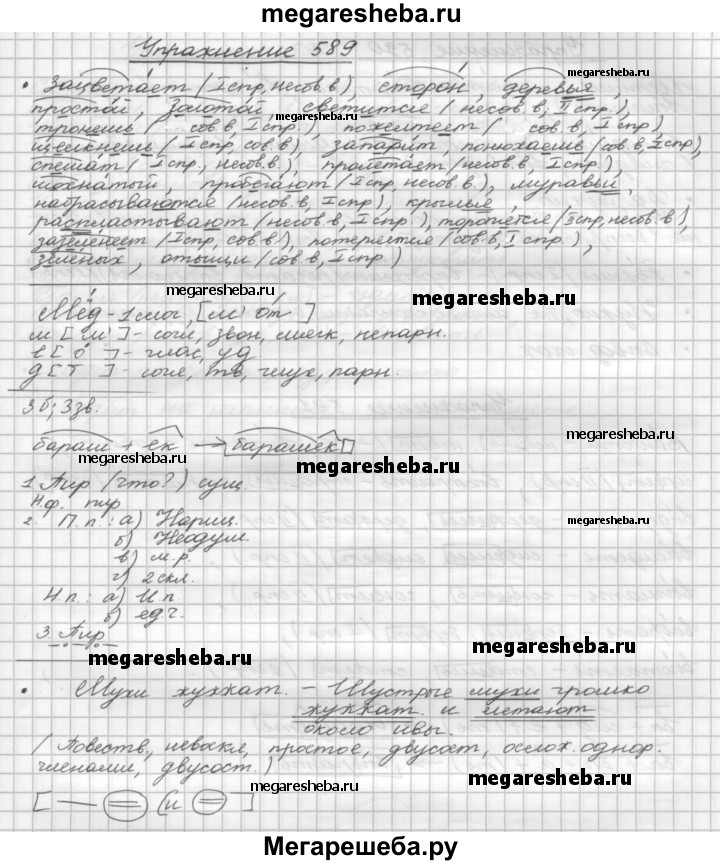 megaresheba.ru
Упражнение 589
• Зацветает (I спр, несов.в), сторон, деревья,
megaresheba.ru
простой, золотой, светится (несов.в, II спр.),
тронешь ( сов.в, I спр), пожелтеет ( сов.в, I спр)
megaresheba.ru
щёлкнешь (I спр, сов.в), запарит, понюхаешь (сов.в, I спр),
спешат (I спр., несов.в), пролетает (несов.в, I спр.),
мохнатый, пробегают (I спр, несов.в.), муравьи,
набрасываются (несов.в, I спр), крылья,
распластывают (несов.в, I спр), торопятся (II спр, несов.в),
зазеленеет (I спр, сов.в), потеряется (сов.в, I спр),
зелёных, отыщи (сов.в, I спр)
megaresheba.ru
megaresheba.ru
Мёд - 1 слог, [м' от]
м [м'] - согл, звон, мягк, непарн.
ё [о] - глас, уд
д [т] - согл, тв, глух, парн.
3 б; 3 зв.
megaresheba.ru
бараш + ек → барашек
megaresheba.ru
megaresheba.ru
1. Пир (что?) сущ.
Н.ф. пир
2. П.п.: а) Нариц.
megaresheba.ru
б) Неодуш.
в) м.р.
г) 2 скл.
megaresheba.ru
Н.п.: а) И.п
б) ед.ч.
3. Пир
megaresheba.ru
megaresheba.ru
• Мухи жужжат. - Шустрые мухи громко
жужжат и летают
около ивы.
(Повеств, невоскл, простое, двусост, ослож. однор.
членами, двусост.)
megaresheba.ru
megaresheba.ru
[ — = и = ]
megaresheba.ru
Мегарешеба.ру